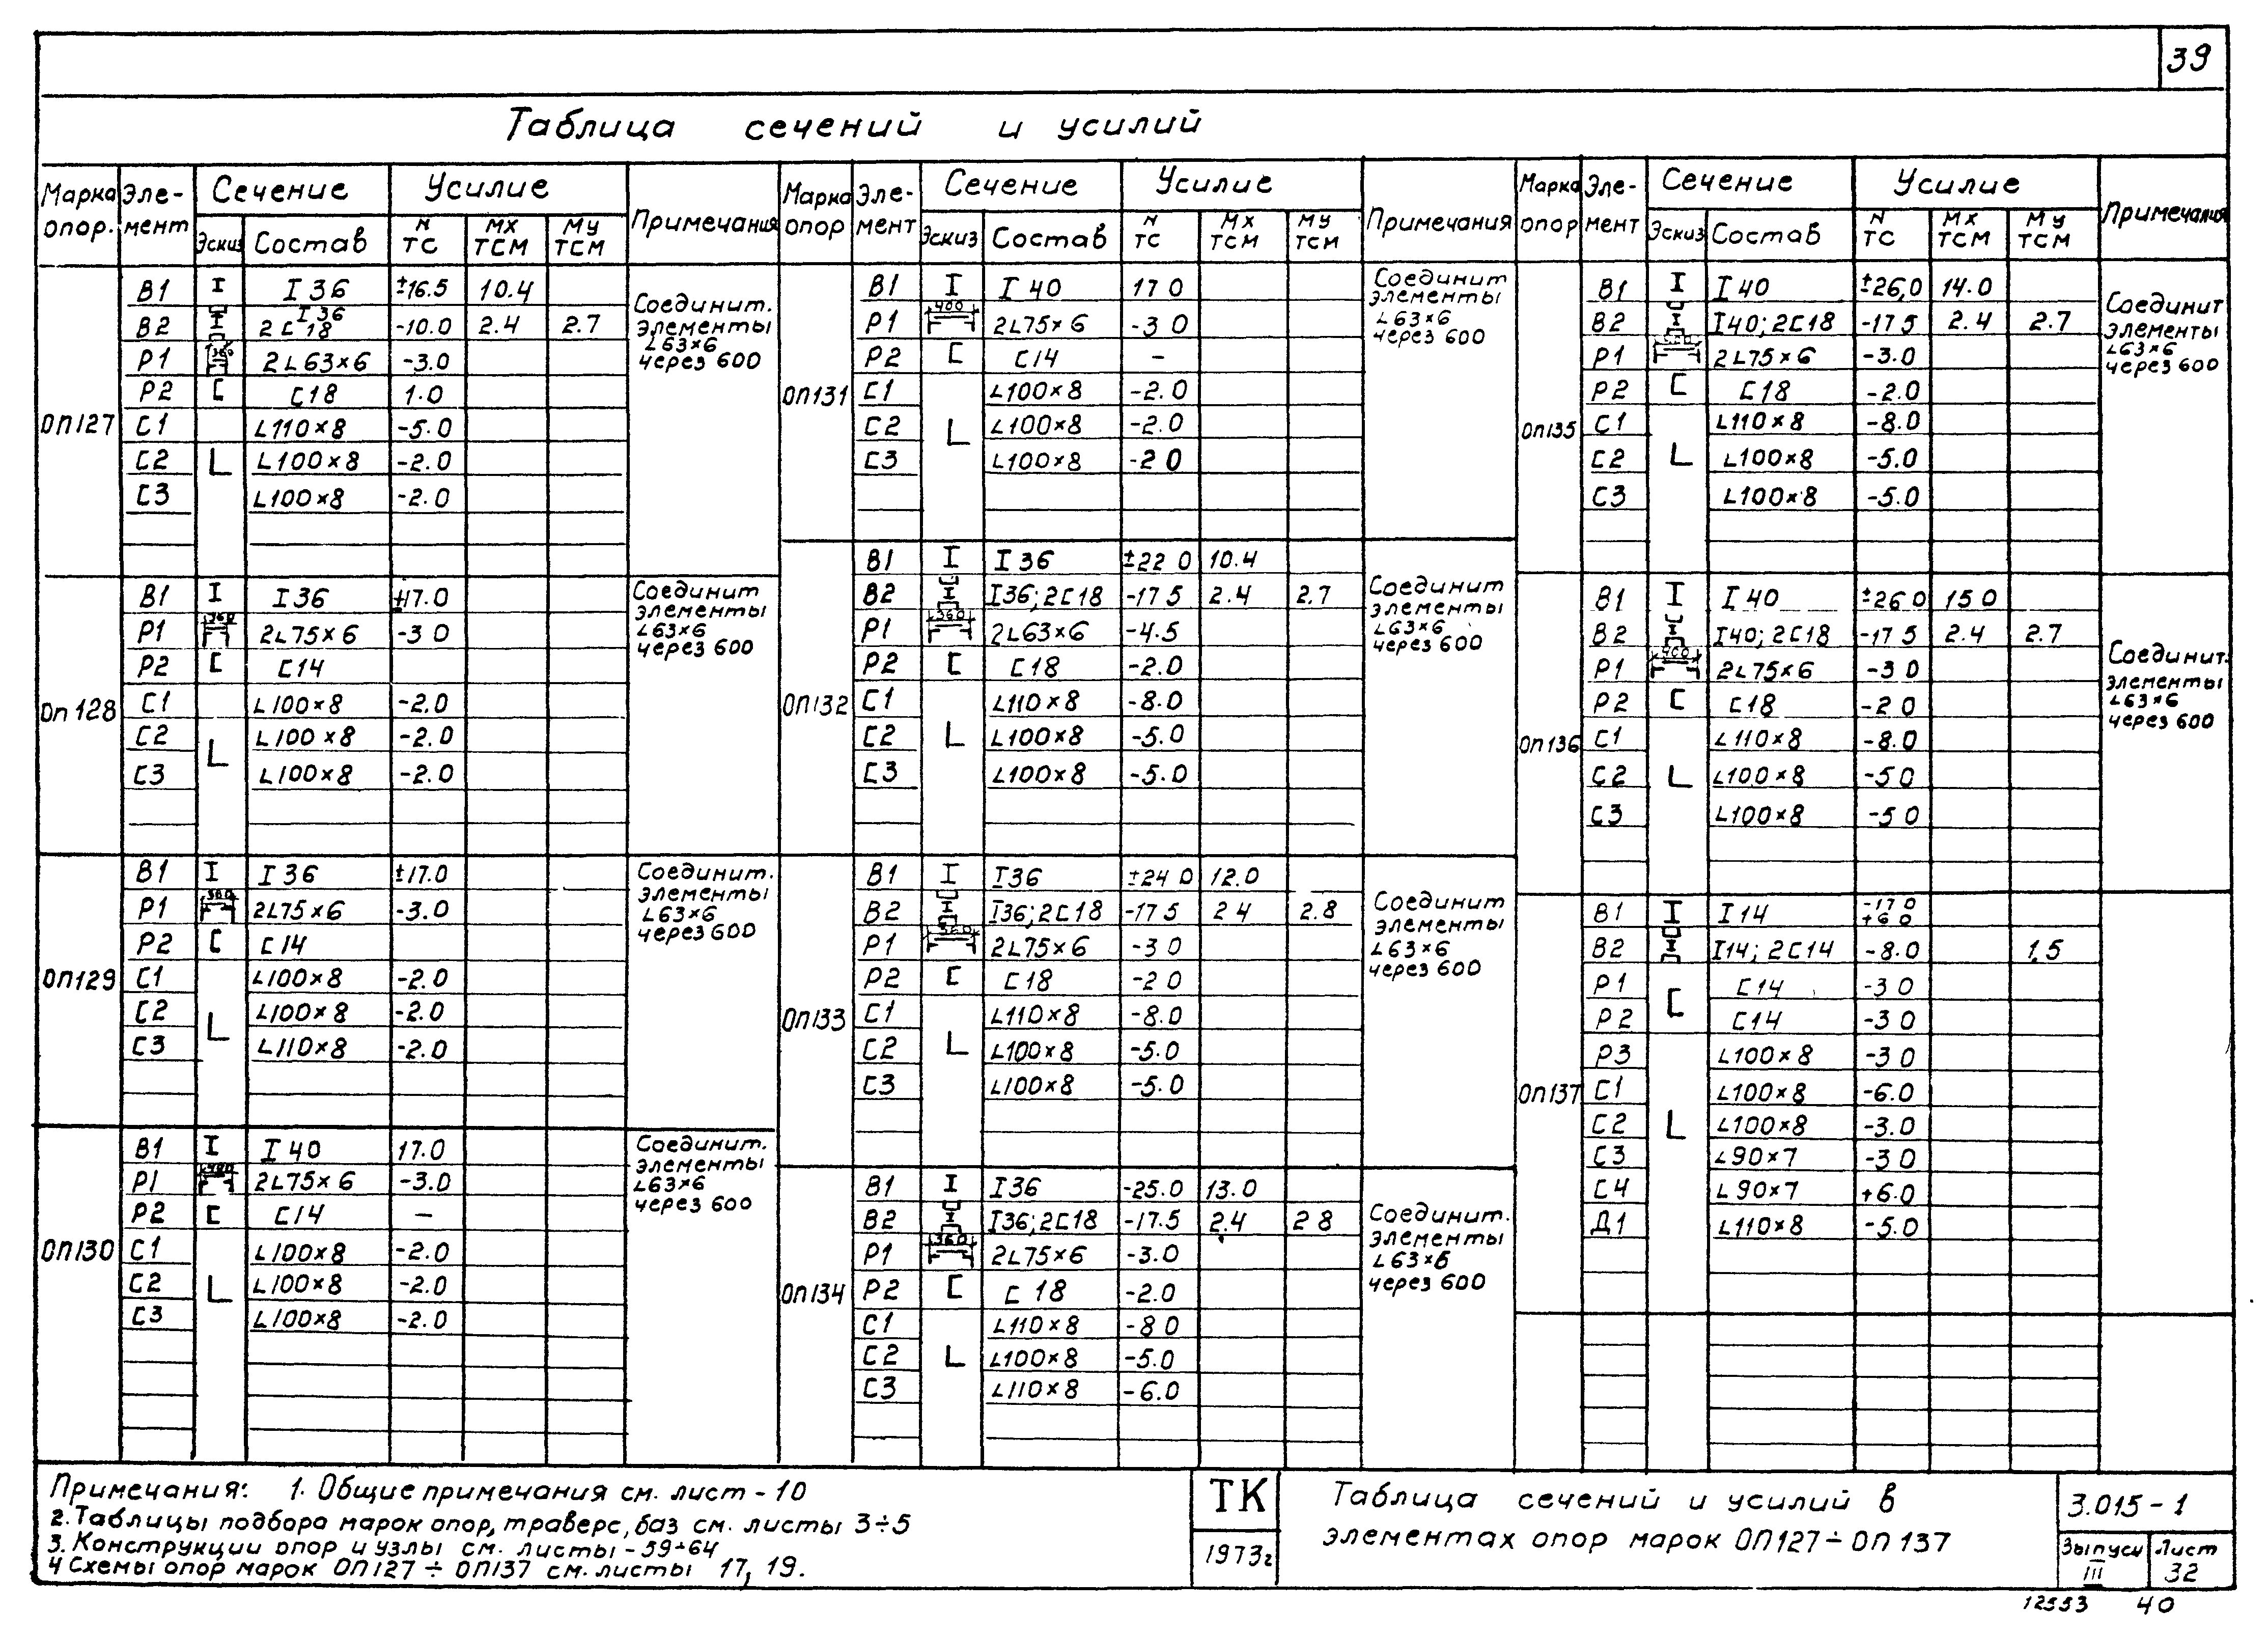 39
Таблица сечений и усилий
Марка опор. Эле-мент Сечение Усилие Примечания
Эскиз Состав N ТС Mx ТСМ My ТСМ
ОП127
В1 I 36 ±16.5 10.4
В2 I 36 2[18 -10.0 2.4 2.7
Р1 360 2L63×6 -3.0
Р2 [18 1.0
С1 L110×8 -5.0
С2 L100×8 -2.0
С3 L100×8 -2.0
Соединит.
элементы
L63×6
через 600
Оп128
В1 I 36 ±17.0
Р1 360 2L75×6 -3 0
Р2 [14
С1 L100×8 -2.0
С2 L100×8 -2.0
С3 L100×8 -2.0
Соединит
элементы
L63×6
через 600
ОП129
В1 I 36 ±17.0
Р1 360 2L75×6 -3.0
Р2 [14
С1 L100×8 -2.0
С2 L100×8 -2.0
С3 L110×8 -2.0
Соединит.
элементы
L63×6
через 600
ОП130
В1 I 40 17.0
Р1 400 2L75×6 -3.0
Р2 [14 —
С1 L100×8 -2.0
С2 L100×8 -2.0
С3 L100×8 -2.0
Соединит.
элементы
L63×6
через 600
Марка опор Эле-мент Сечение Усилие Примечания
Эскиз Состав N ТС Mx ТСМ My ТСМ
ОП131
В1 I 40 17 0
Р1 400 2L75×6 -3 0
Р2 [14 —
С1 L100×8 -2.0
С2 L100×8 -2.0
С3 L100×8 -2 0
Соединит
элементы
L63×6
через 600
ОП132
В1 I 36 ±22 0 10.4
В2 I36; 2[18 -17 5 2.4 2.7
Р1 360 2L63×6 -4.5
Р2 [18 -2.0
С1 L110×8 -8.0
С2 L100×8 -5.0
С3 L100×8 -5.0
Соединит
элементы
L63×6
через 600
ОП133
В1 I36 ±24 0 12.0
В2 I36; 2[18 -17 5 2 4 2.8
Р1 360 2L75×6 -3 0
Р2 [18 -2 0
С1 L110×8 -8.0
С2 L100×8 -5.0
С3 L100×8 -5.0
Соединит
элементы
L63×6
через 600
ОП134
В1 I36 -25.0 13.0
В2 I36; 2[18 -17.5 2.4 2 8
Р1 360 2L75×6 -3.0
Р2 [18 -2.0
С1 L110×8 -8 0
С2 L100×8 -5.0
С3 L110×8 -6.0
Соединит.
элементы
L63×6
через 600
Марка опор Эле-мент Сечение Усилие Примечания
Эскиз Состав N ТС Mx ТСМ My ТСМ
ОП135
В1 I 40 ±26,0 14.0
В2 I40; 2[18 -17 5 2.4 2.7
Р1 2L75×6 -3.0
Р2 [18 -2.0
С1 L110×8 -8.0
С2 L100×8 -5.0
С3 L100×8 -5.0
Соединит
элементы
L63×6
через 600
ОП136
В1 I 40 ±26 0 15 0
В2 I40; 2[18 -17 5 2.4 2.7
Р1 400 2L75×6 -3 0
Р2 [18 -2 0
С1 L110×8 -8.0
С2 L100×8 -5 0
С3 L100×8 -5 0
Соединит.
элементы
L63×6
через 600
ОП137
В1 I 14 -17 0 +6 0
В2 I14; 2[14 -8.0 1.5
Р1 [14 -3 0
Р2 [14 -3 0
Р3 L100×8 -3 0
С1 L100×8 -6.0
С2 L100×8 -3.0
С3 L90×7 -3 0
С4 L90×7 +6.0
Д1 L110×8 -5.0
Примечания: 1. Общие примечания см. лист - 10
2. Таблицы подбора марок опор, траверс, баз см. листы 3÷5
3. Конструкции опор и узлы см. листы - 59÷64
4 Схемы опор марок ОП127 ÷ ОП137 см. листы 17, 19.
ТК
1973г
Таблица сечений и усилий в
элементах опор марок ОП127 ÷ ОП 137
3.015 - 1
Выпуск III
Лист 32
12553 40